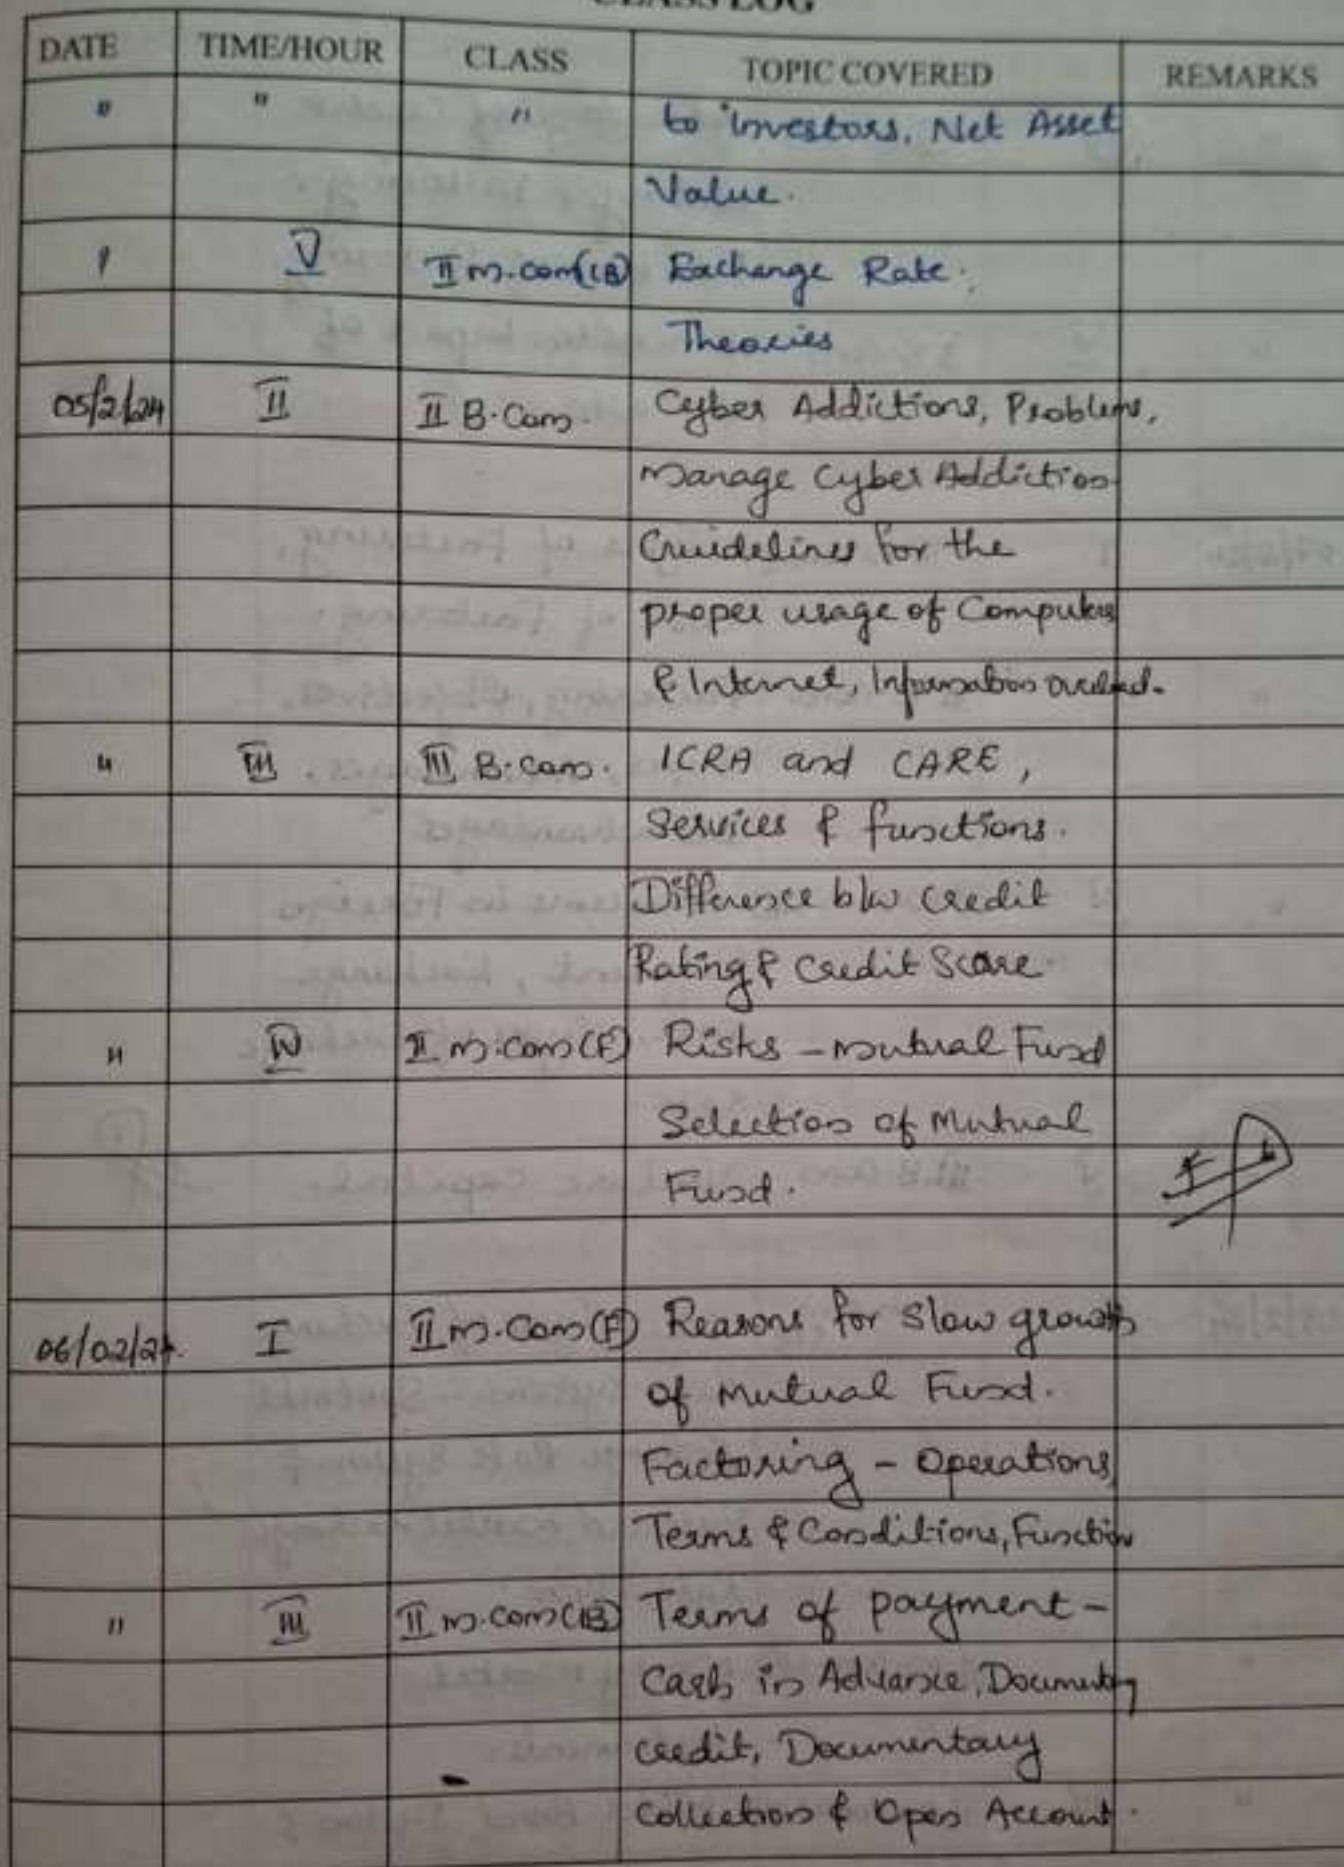 CLASS LOG
DATE TIME/HOUR CLASS TOPIC COVERED REMARKS
" " " to investors, Net Asset
Value.
" V II M.Com(IB) Exchange Rate.
Theories
05/2/24 II II B.Com. Cyber Addictions, Problems,
Manage Cyber Addiction
Guidelines for the
proper usage of Computer
& Internet, Information overload.
" III III B.Com. ICRA and CARE,
Services & functions.
Difference b/w Credit
Rating & Credit Score.
" IV II M.Com(F) Risks - Mutual Fund
Selection of Mutual
Fund.
06/02/24. I II M.Com(F) Reasons for Slow growth
of Mutual Fund.
Factoring - Operations
Terms & Conditions, Function
" III II M.Com(IB) Terms of payment -
Cash in Advance, Documentary
credit, Documentary
Collection & Open Account.